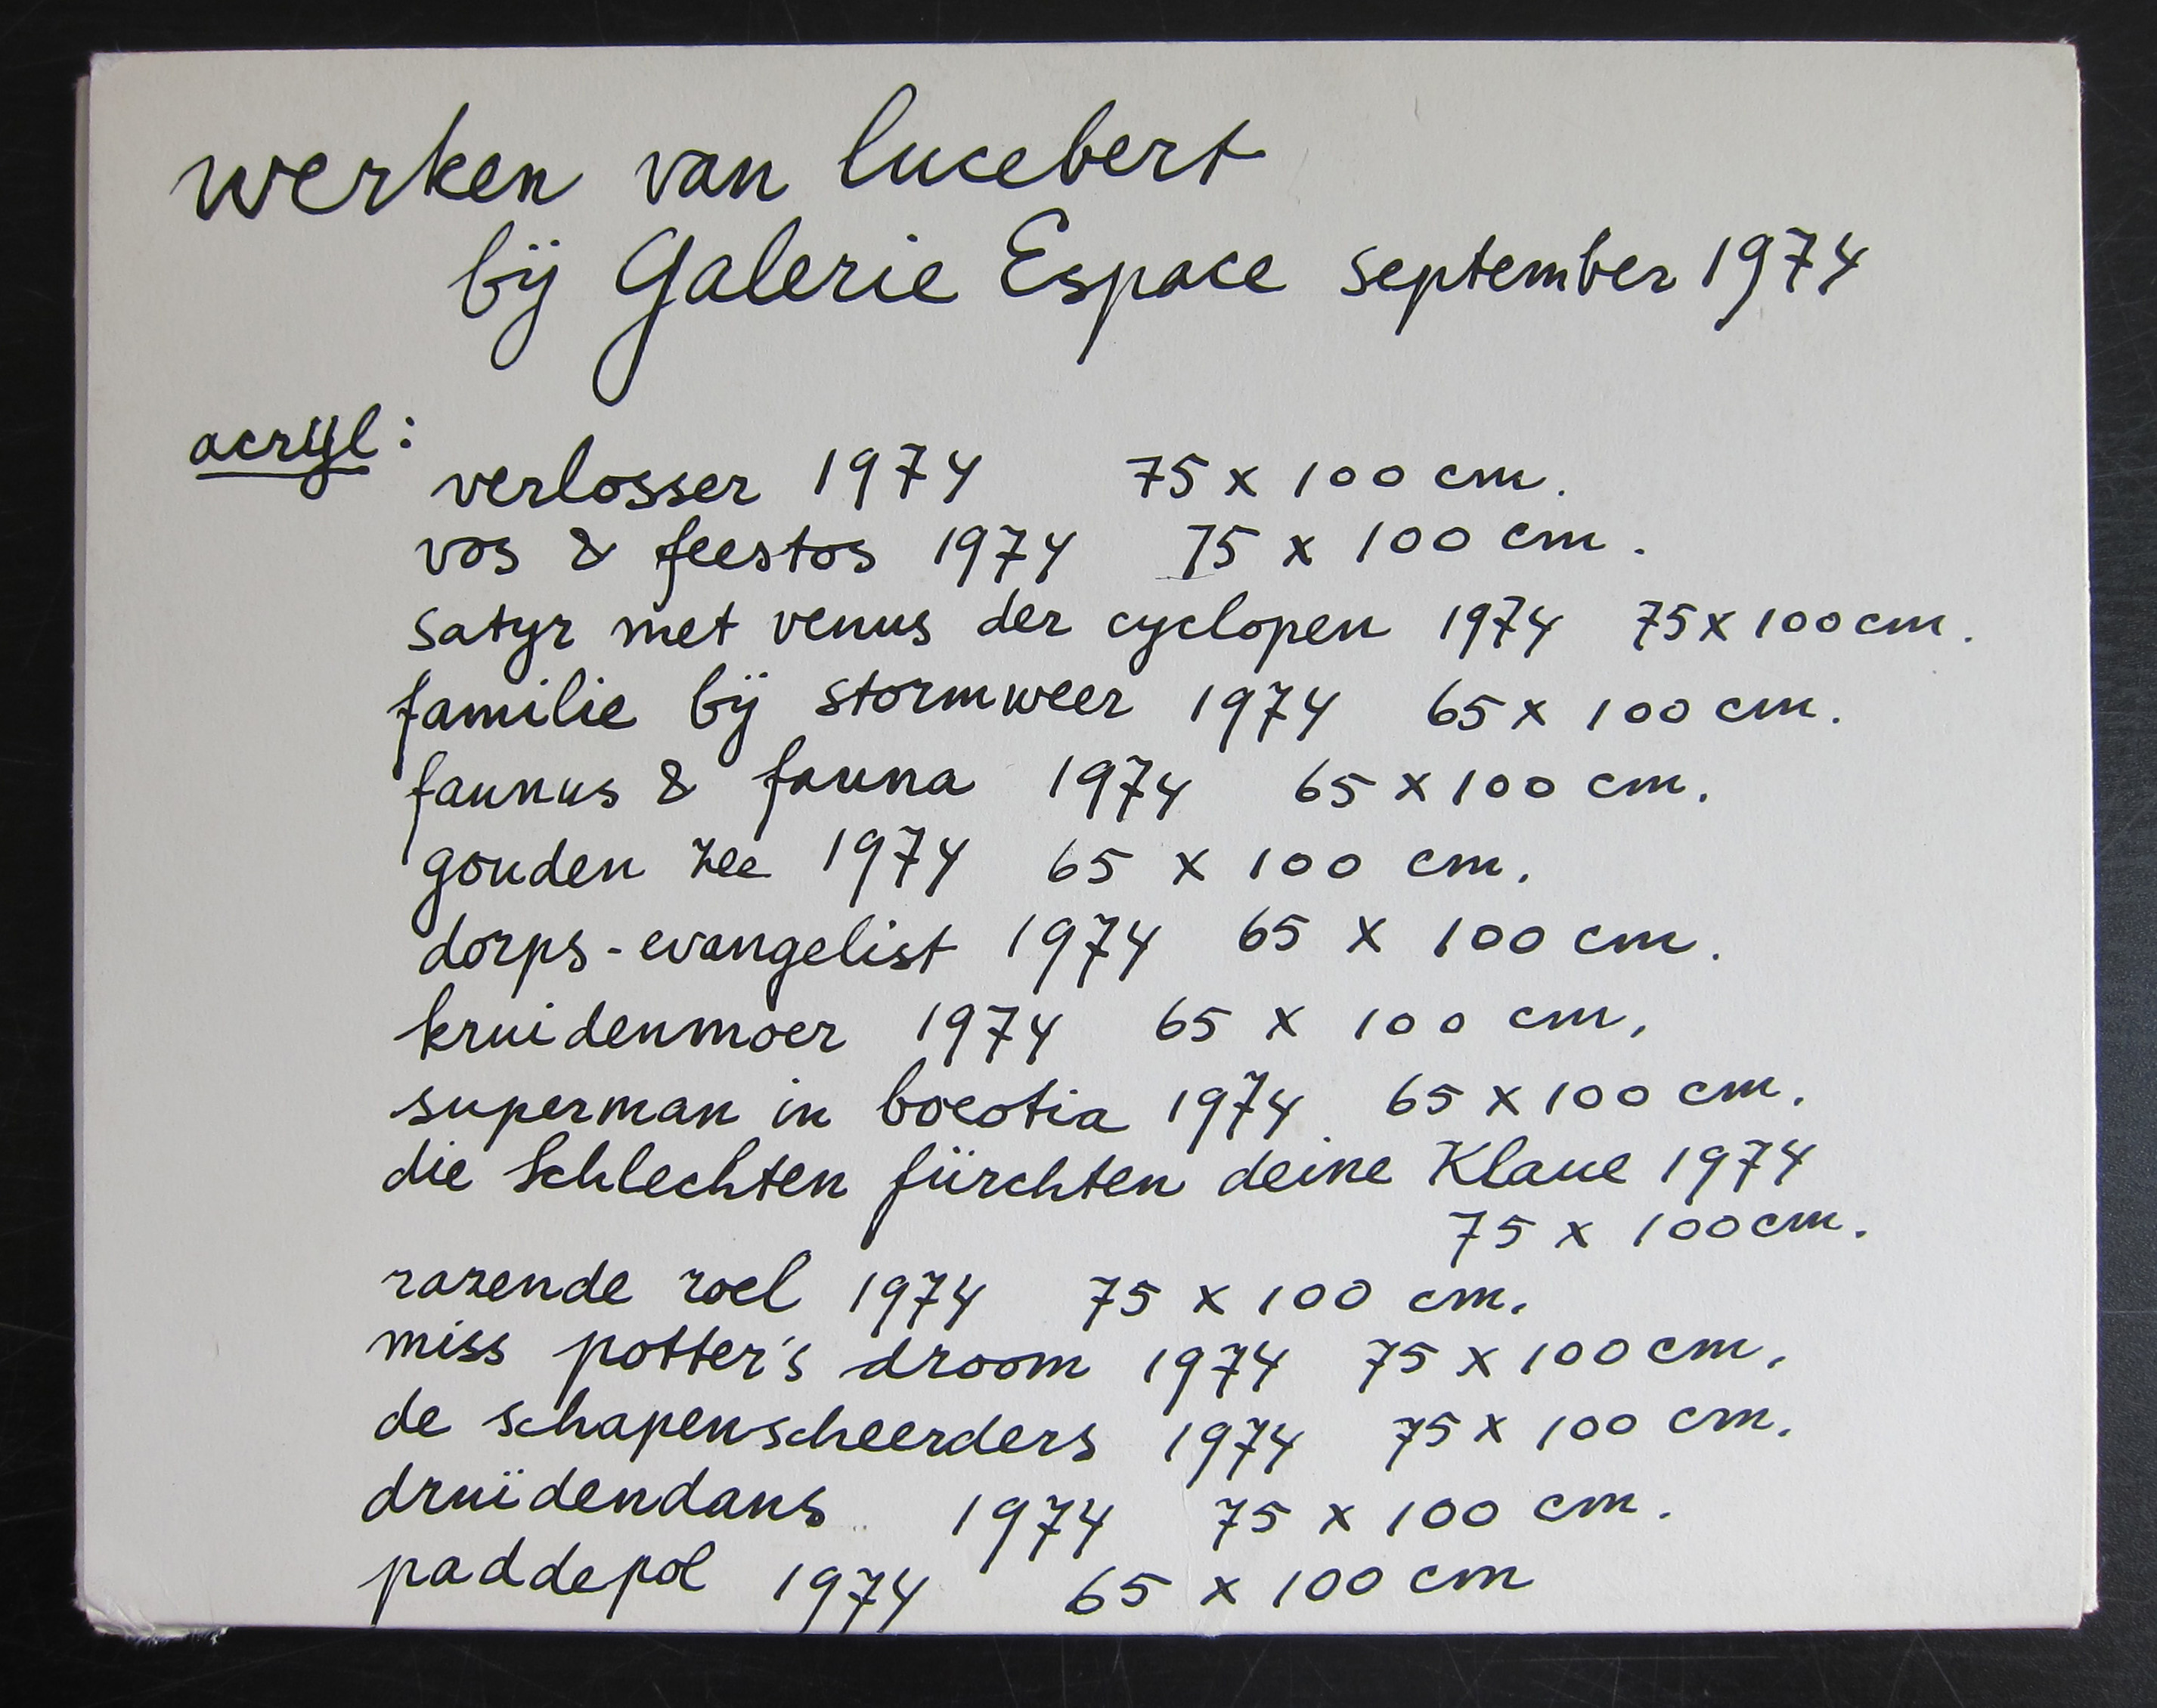 werken van lucebert
bij Galerie Espace september 1974
acrijl:
verlosser 1974 75 x 100 cm.
vos & feestos 1974 75 x 100 cm.
satyr met venus der cyclopen 1974 75 x 100 cm.
familie bij stormweer 1974 65 x 100 cm.
faunus & fauna 1974 65 x 100 cm.
gouden zee 1974 65 x 100 cm.
dorps-evangelist 1974 65 x 100 cm.
kruidenmoer 1974 65 x 100 cm.
superman in boeotia 1974 65 x 100 cm.
die Schlechten fürchten deine Klaue 1974
75 x 100 cm.
razende roel 1974 75 x 100 cm.
miss potter's droom 1974 75 x 100 cm.
de schapenscheerders 1974 75 x 100 cm.
druïdendans 1974 75 x 100 cm.
paddepol 1974 65 x 100 cm